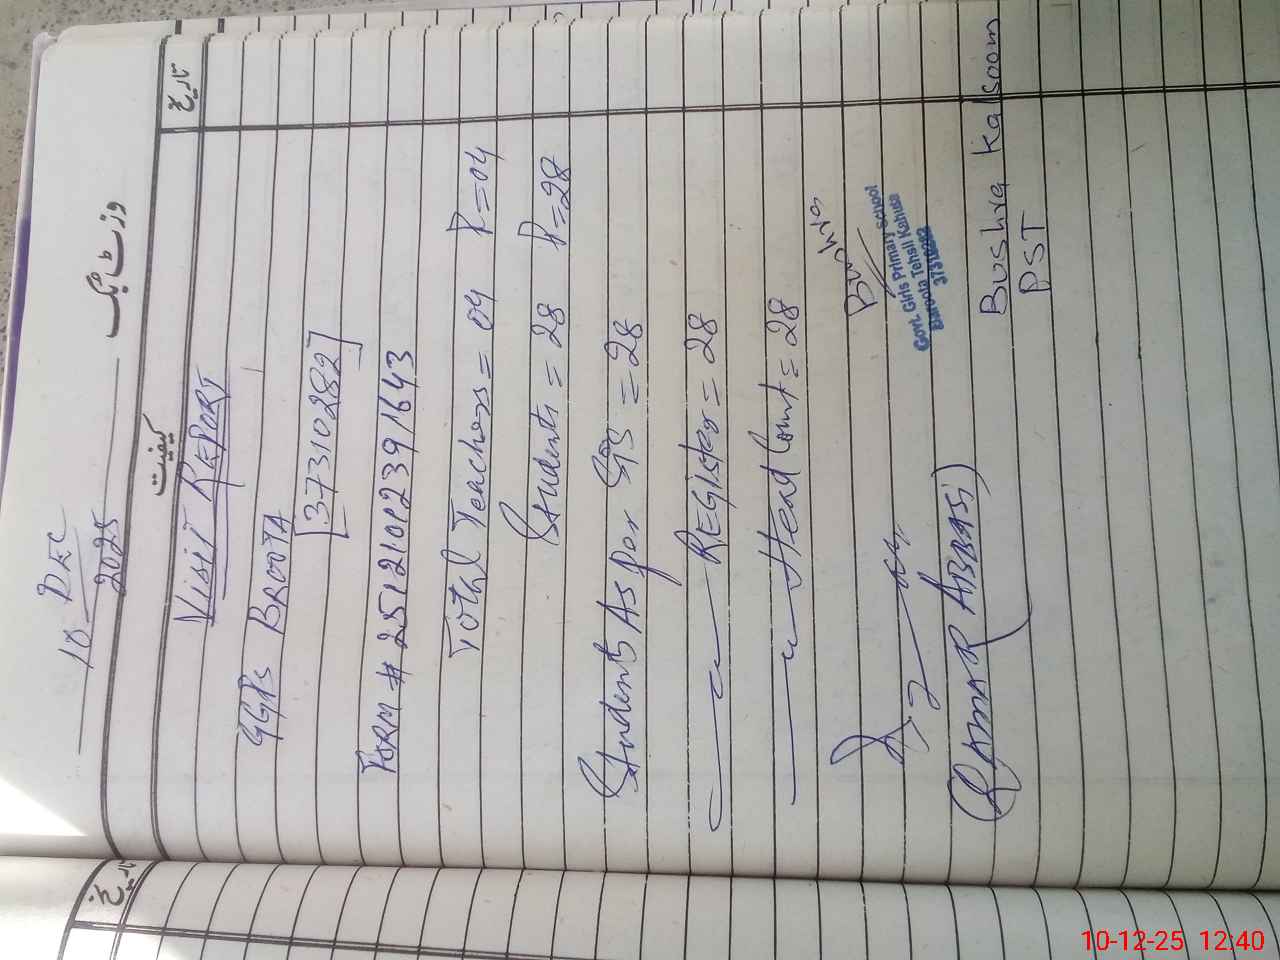 وزٹ بک
10 DEC
2025
تاریخ
کیفیت
VISIT REPORT
GGPS BROOTA
[37310282]
FORM # 25121012391643
Total Teachers = 04 P=04
Students = 28 P=28
Students As per SIS = 28
REGISter = 28
Head Count = 28
Bushra
Govt. Girls Primary School
Baroota Tehsil Kahuta
37310282
(QAMAR ABBASI)
Bushra kalsoom
PST
تاریخ
10-12-25 12:40